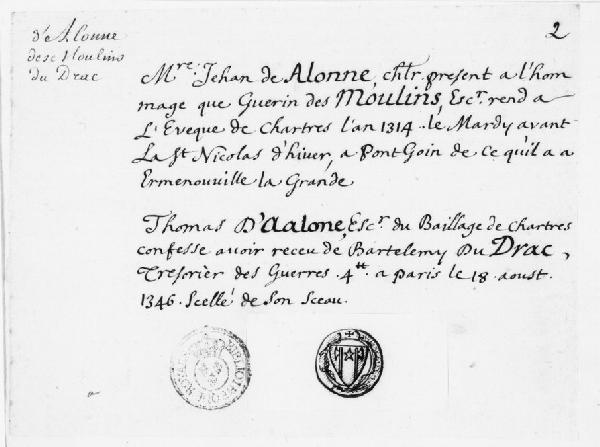 2
d'Alonne
des Moulins
du Drac
Mre. Jehan de Alonne, chlr. present a l'hom
mage que Guerin des Moulins, Escr. rend a
L'Eveque de Chartres l'an 1314. le Mardy avant
La St Nicolas d'hiver, a Pont Goin de Ce qu'il a a
Ermenouville la Grande
Thomas D'Aalone, Escr. du Baillage de Chartres
confesse avoir receu de Bartelemy Du Drac,
Tresorier des Guerres. 4tt. a Paris le 18. aoust.
1346. Scellé de Son Sceau.